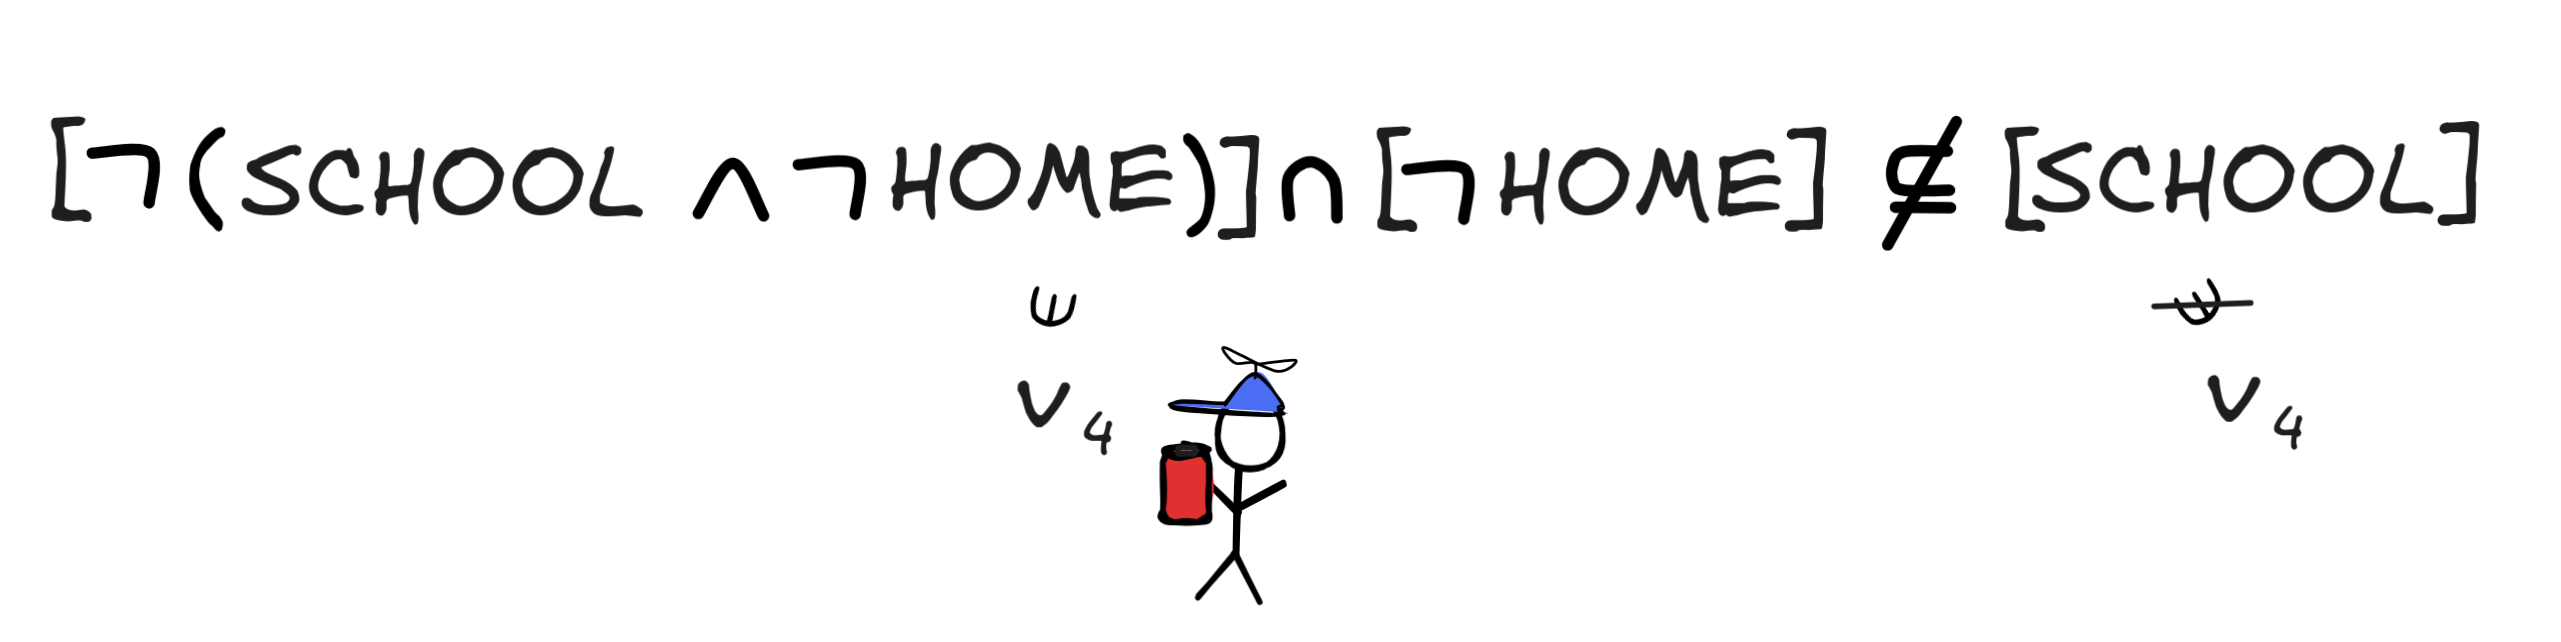 [¬(SCHOOL ∧ ¬HOME)] ∩ [¬HOME] ⊈ [SCHOOL]
⋓ ⋓̸
v₄ v₄